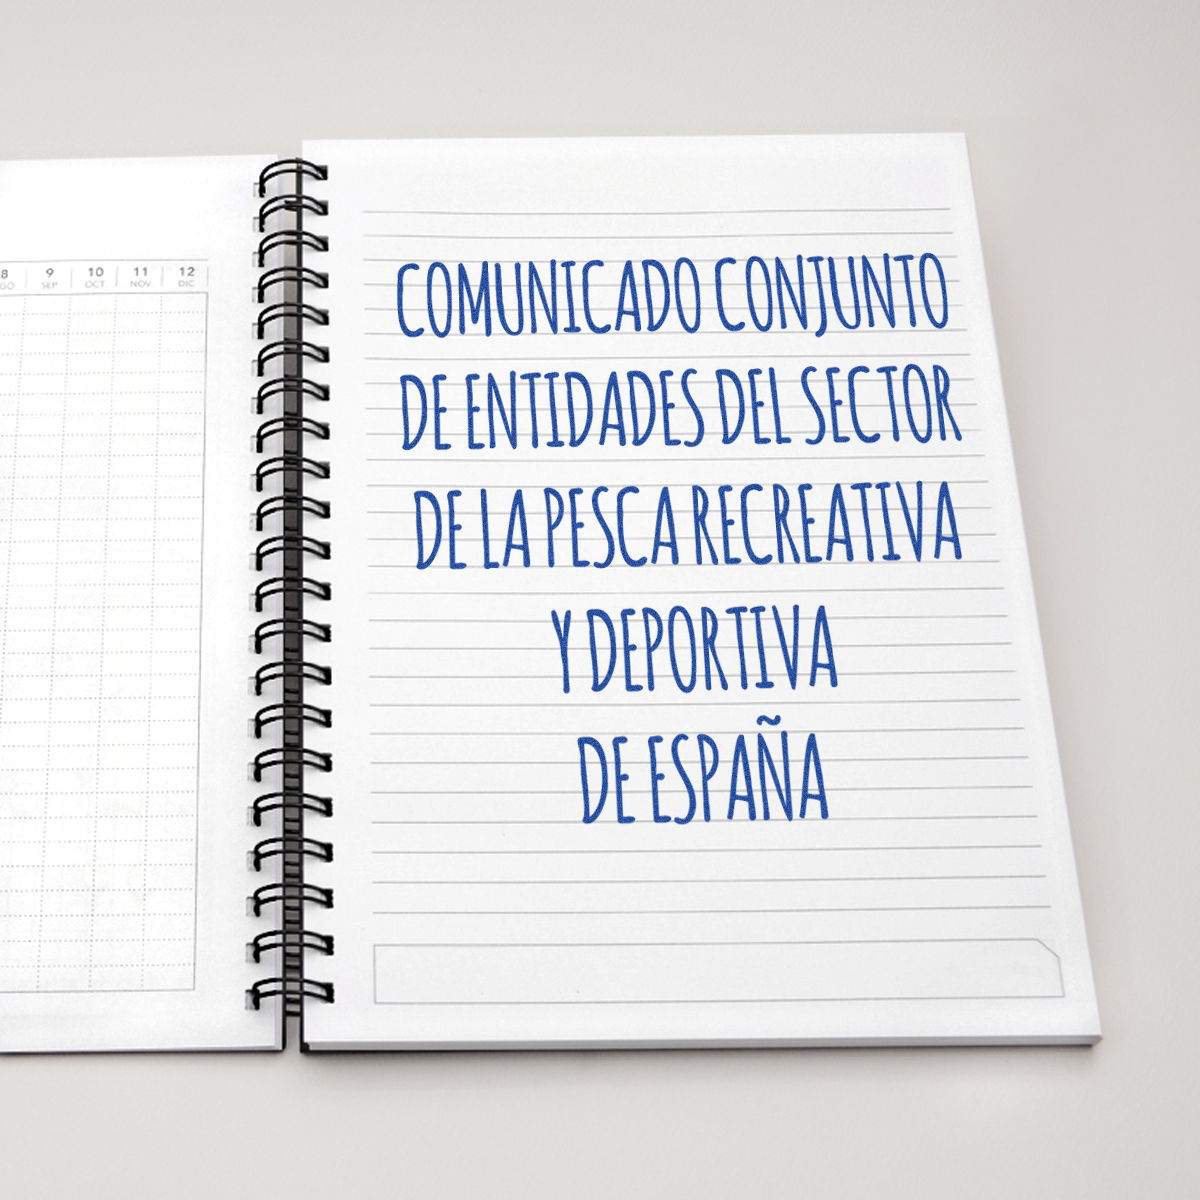 8 9 10 11 12
GO SEP OCT NOV DIC
COMUNICADO CONJUNTO
DE ENTIDADES DEL SECTOR
DE LA PESCA RECREATIVA
Y DEPORTIVA
DE ESPAÑA